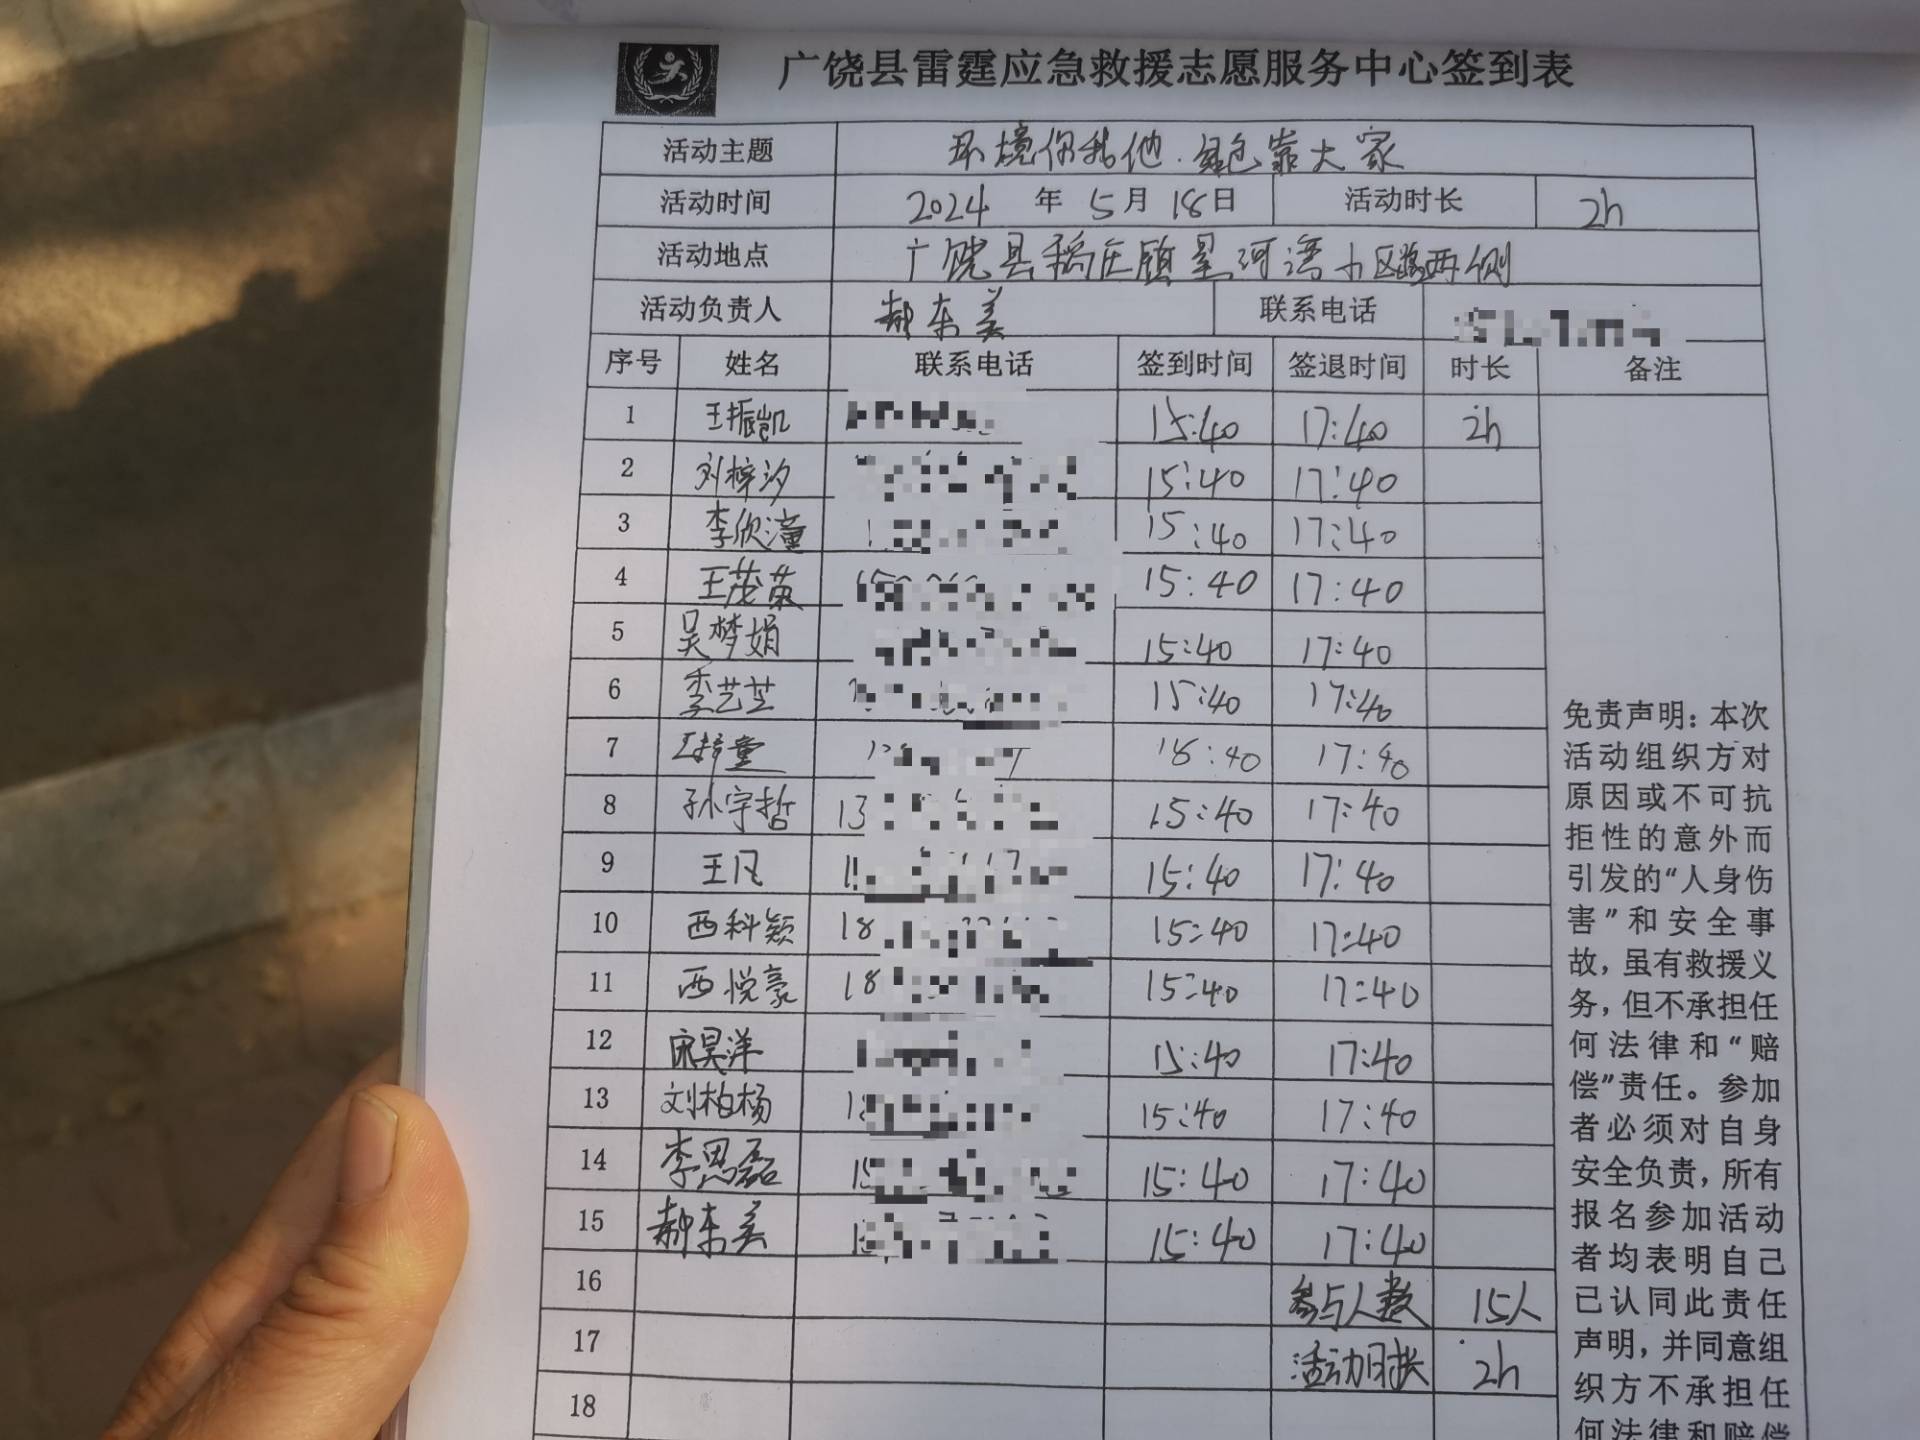 广饶县雷霆应急救援志愿服务中心签到表
活动主题 环境你我他.绿色靠大家
活动时间 2024 年 5 月 18 日 活动时长 2h
活动地点 广饶县稻庄镇星河湾小区路两侧
活动负责人 郝东美 联系电话
序号 姓名 联系电话 签到时间 签退时间 时长 备注
1 王振凯 15:40 17:40 2h
2 刘梓汐 15:40 17:40
3 李欣潼 15:40 17:40
4 王茂菊 15:40 17:40
5 吴梦娟 15:40 17:40
6 李艺芷 15:40 17:40
7 王梓童 18:40 17:40
8 孙宇哲 13 15:40 17:40
9 王凡 15:40 17:40
10 西科颖 18 15:40 17:40
11 西悦豪 18 15:40 17:40
12 宋昊洋 15:40 17:40
13 刘柏杨 15:40 17:40
14 李思磊 15:40 17:40
15 郝东美 15:40 17:40
16 参与人数 15人
17 活动时长 2h
18
免责声明：本次
活动组织方对
原因或不可抗
拒性的意外而
引发的“人身伤
害”和安全事
故，虽有救援义
务，但不承担任
何法律和“赔
偿”责任。参加
者必须对自身
安全负责，所有
报名参加活动
者均表明自己
已认同此责任
声明，并同意组
织方不承担任
何法律和赔偿